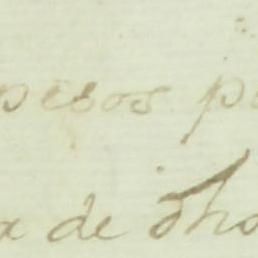 pesos p
de dho